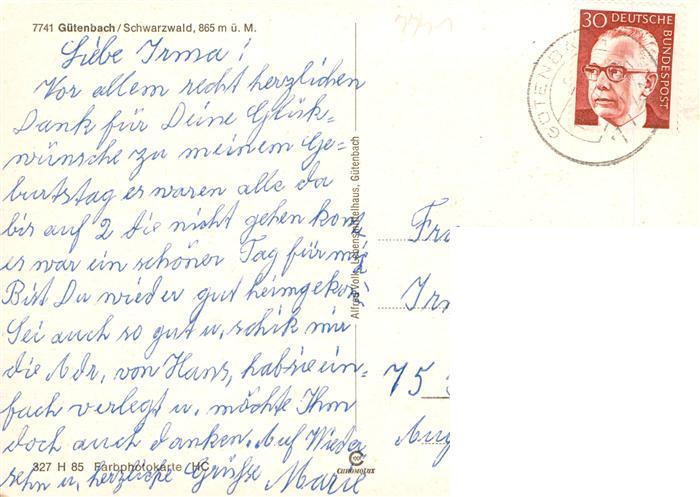 7741 Gütenbach/Schwarzwald, 865 m ü. M.
Liebe Irma!
Vor allem recht herzlichen
Dank für Deine Glück-
wünsche zu meinem Ge-
burtstag es waren alle da
bis auf 2 die nicht gehen konn
es war ein schöner Tag für mich
Bist Du wieder gut heimgekom
Sei auch so gut u. schik mir
die Adr. von Hans, hab sie ein-
fach verlegt u. möchte Ihm
doch auch danken. Auf Wieder
sehn u. herzliche Grüße Marie
327 H 85 Farbphotokarte HC
Alfred Volk, Lebensmittelhaus, Gütenbach
CHROMOLUX
30 DEUTSCHE
BUNDESPOST
GÜTENBA
Fra
Irm
75
Aug